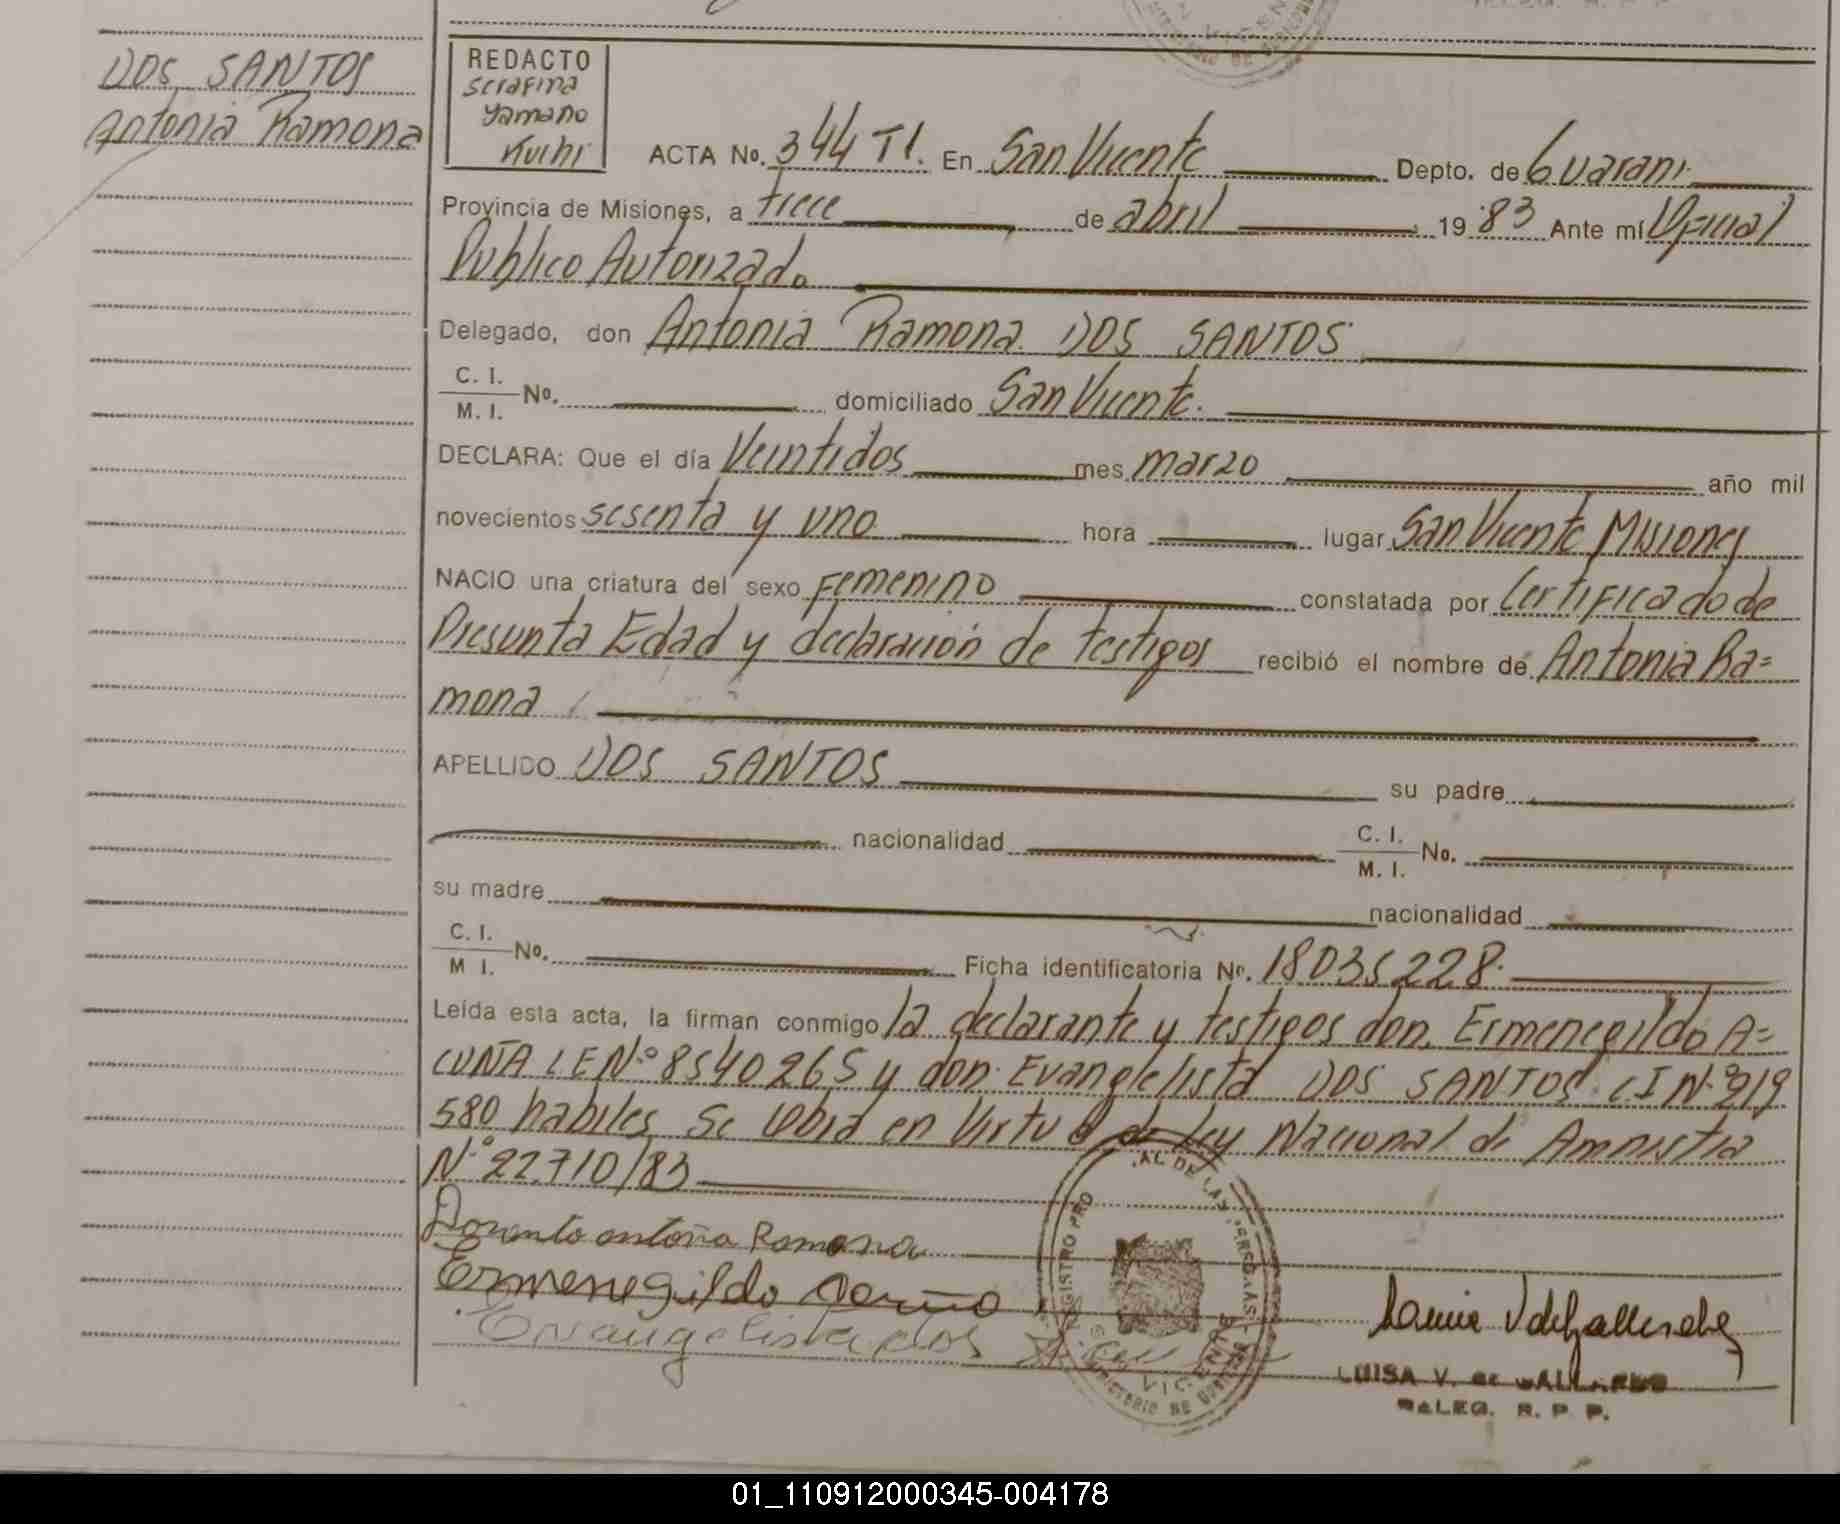 DOS SANTOS
Antonia Ramona
REDACTO
Serafina
Yamano
Kuihi
ACTA No. 344 T1. En San Vicente Depto. de Guarani
Provincia de Misiones, a trece de abril 1983 Ante mí Oficial
Publico Autorizado
Delegado, don Antonia Ramona DOS SANTOS
C. I.
M. I. No. domiciliado San Vicente.
DECLARA: Que el día Veintidos mes marzo año mil
novecientos sesenta y uno hora lugar San Vicente Misiones
NACIO una criatura del sexo Femenino constatada por Certificado de
Presunta Edad y declaración de testigos recibió el nombre de Antonia Ra=
mona
APELLIDO DOS SANTOS su padre
nacionalidad C. I.
M. I. No.
su madre nacionalidad
C. I.
M I. No. Ficha identificatoria No. 18035228.
Leída esta acta, la firman conmigo la declarante y testigos don. Ermenegildo A=
CUÑA L E N° 8540265 y don Evangelista DOS SANTOS C.I N° 219
580 habiles Se labra en Virtud de Ley Nacional de Amnistia
N° 22.710/83
antoña Ramona
Ermenegildo
Evangelista dos
REGISTRO PRO AL DE LAS PERSONAS
SAN VICENTE
MINISTERIO DE GOBIERNO
LUISA V. de GALLARDO
DELEG. R. P. P.
01_110912000345-004178